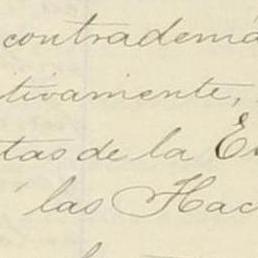 contrademá
tivamente,
tas de la E
á las Hac